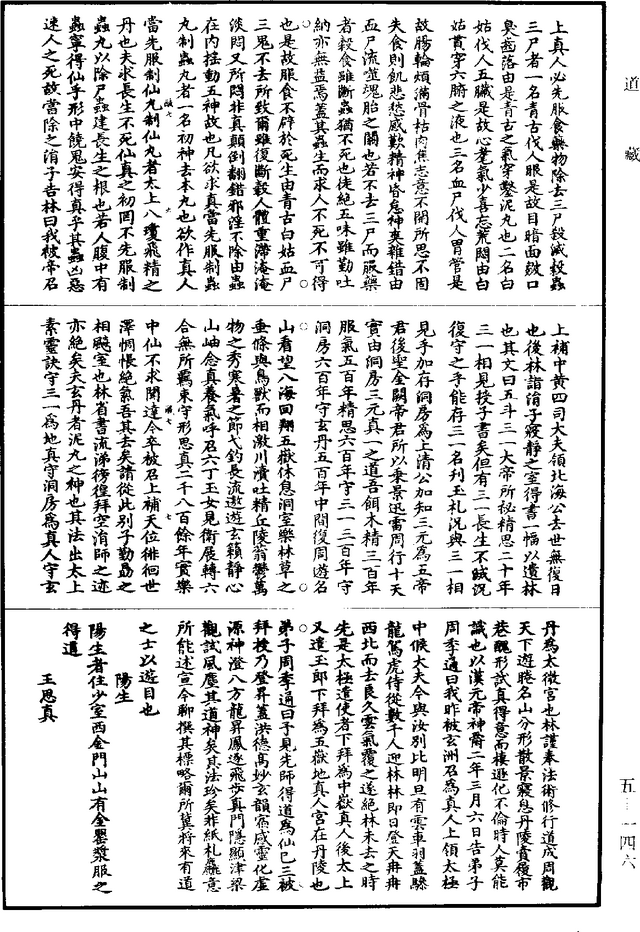 道藏
上真人必先服食藥物除去三尸殺滅穀蟲
三尸者一名青古伐人眼是故目暗面皺口
臭齒落由是青古之氣穿鑿泥丸也二名白
姑伐人五臟是故心耄氣少喜忘荒悶由白
姑貫穿六腑之液也三名血尸伐人胃管是
故腸輪煩滿骨枯肉焦志意不開所思不固
失食則飢悲愁感歎精神昝怠神爽雜錯由
血尸流噬魂胎之關也若不去三尸而服藥
者穀食雖斷蟲猶不死也徒絕五味雖勤吐
納亦無益焉蓋其蟲生而求人不死不可得
也是故服食不辟於死生由青古白姑血尸
三鬼不去所致爾雖復斷穀人體重滯淹淹
淡悶又所悶非真顛倒翻錯邪淫不除由蟲
在内搖動五神故也凡欲求真當先服制蟲
丸制蟲丸者一名初神去本丸也欲作真人
當先服制仙丸制仙丸者太上八瓊飛精之
丹也夫求長生不死仙真之初罔不先服制
蟲丸以除尸蟲建長生之根也若人腹中有
蟲寧得仙乎形中饒鬼安得真乎其蟲凶惡
速人之死故當除之涓子告林曰我被帝召
上補中黄四司大夫領北海公去世無復日
也後林詣涓子寢靜之室得書一幅以遺林
也其文曰五斗三一大帝所祕精思二十年
三一相見授子書矣但有三一長生不滅況
復守之乎能存三一名刊玉札況與三一相
見乎加存洞房為上清公加知三元為五帝
君後聖金闕帝君所以乘景迅雷周行十天
實由洞房三元真一之道吾餌术精三百年
服氣五百年精思六百年守三一三百年守
洞房六百年守玄丹五百年中間復周遊名
山看望八海回翔五嶽休息洞室樂林草之
垂條與鳥獸而相激川瀆吐精丘陵翁鬱萬
物之秀寒暑之節弋釣長流遨遊玄籟靜心
山岫念真養氣呼召六丁玉女見衛展轉六
合無所羈束守形思真二千八百餘年實樂
中仙不求聞達今卒被召上補天位徘徊世
澤惆悵絕氣吾其去矣請從此别子勤勗之
相飚室也林省書流涕徬徨拜空涓師之迹
亦絕矣夫玄丹者泥丸之神也其法出太上
素靈訣守三一為地真守洞房為真人守玄
丹為太微宫也林謹奉法術修行道成周觀
天下遊賂名山分形散景寢息丹陵賣履市
巷醜形試真得意而棲遁化不倫時人莫能
識也以漢元帝神爵二年三月六日告弟子
周季通曰我昨被玄洲召為真人上領太極
中候大夫今與汝别比明旦有雲車羽蓋驂
龍駕虎侍從數千人迎林林即日登天冉冉
西北而去良久雲氣覆之遂絕林未去之時
先是太極遣使者下拜為中嶽真人後太上
又遣玉郎下拜為五嶽地真人宫在丹陵也
弟子周季通曰予見先師得道為仙已三被
拜授乃登昇蓋洪德高妙玄韻宿感靈化虚
源神澄八方龍昇鳳逐飛步真門隱顯津梁
觀試風塵其道神矣其法珍矣非紙札麤意
所能述宣今聊撰其標略爾所冀將來有道
之士以遊目也
陽生
陽生者住少室西金門山山有金罌漿服之
得道
王思真
五—一四六